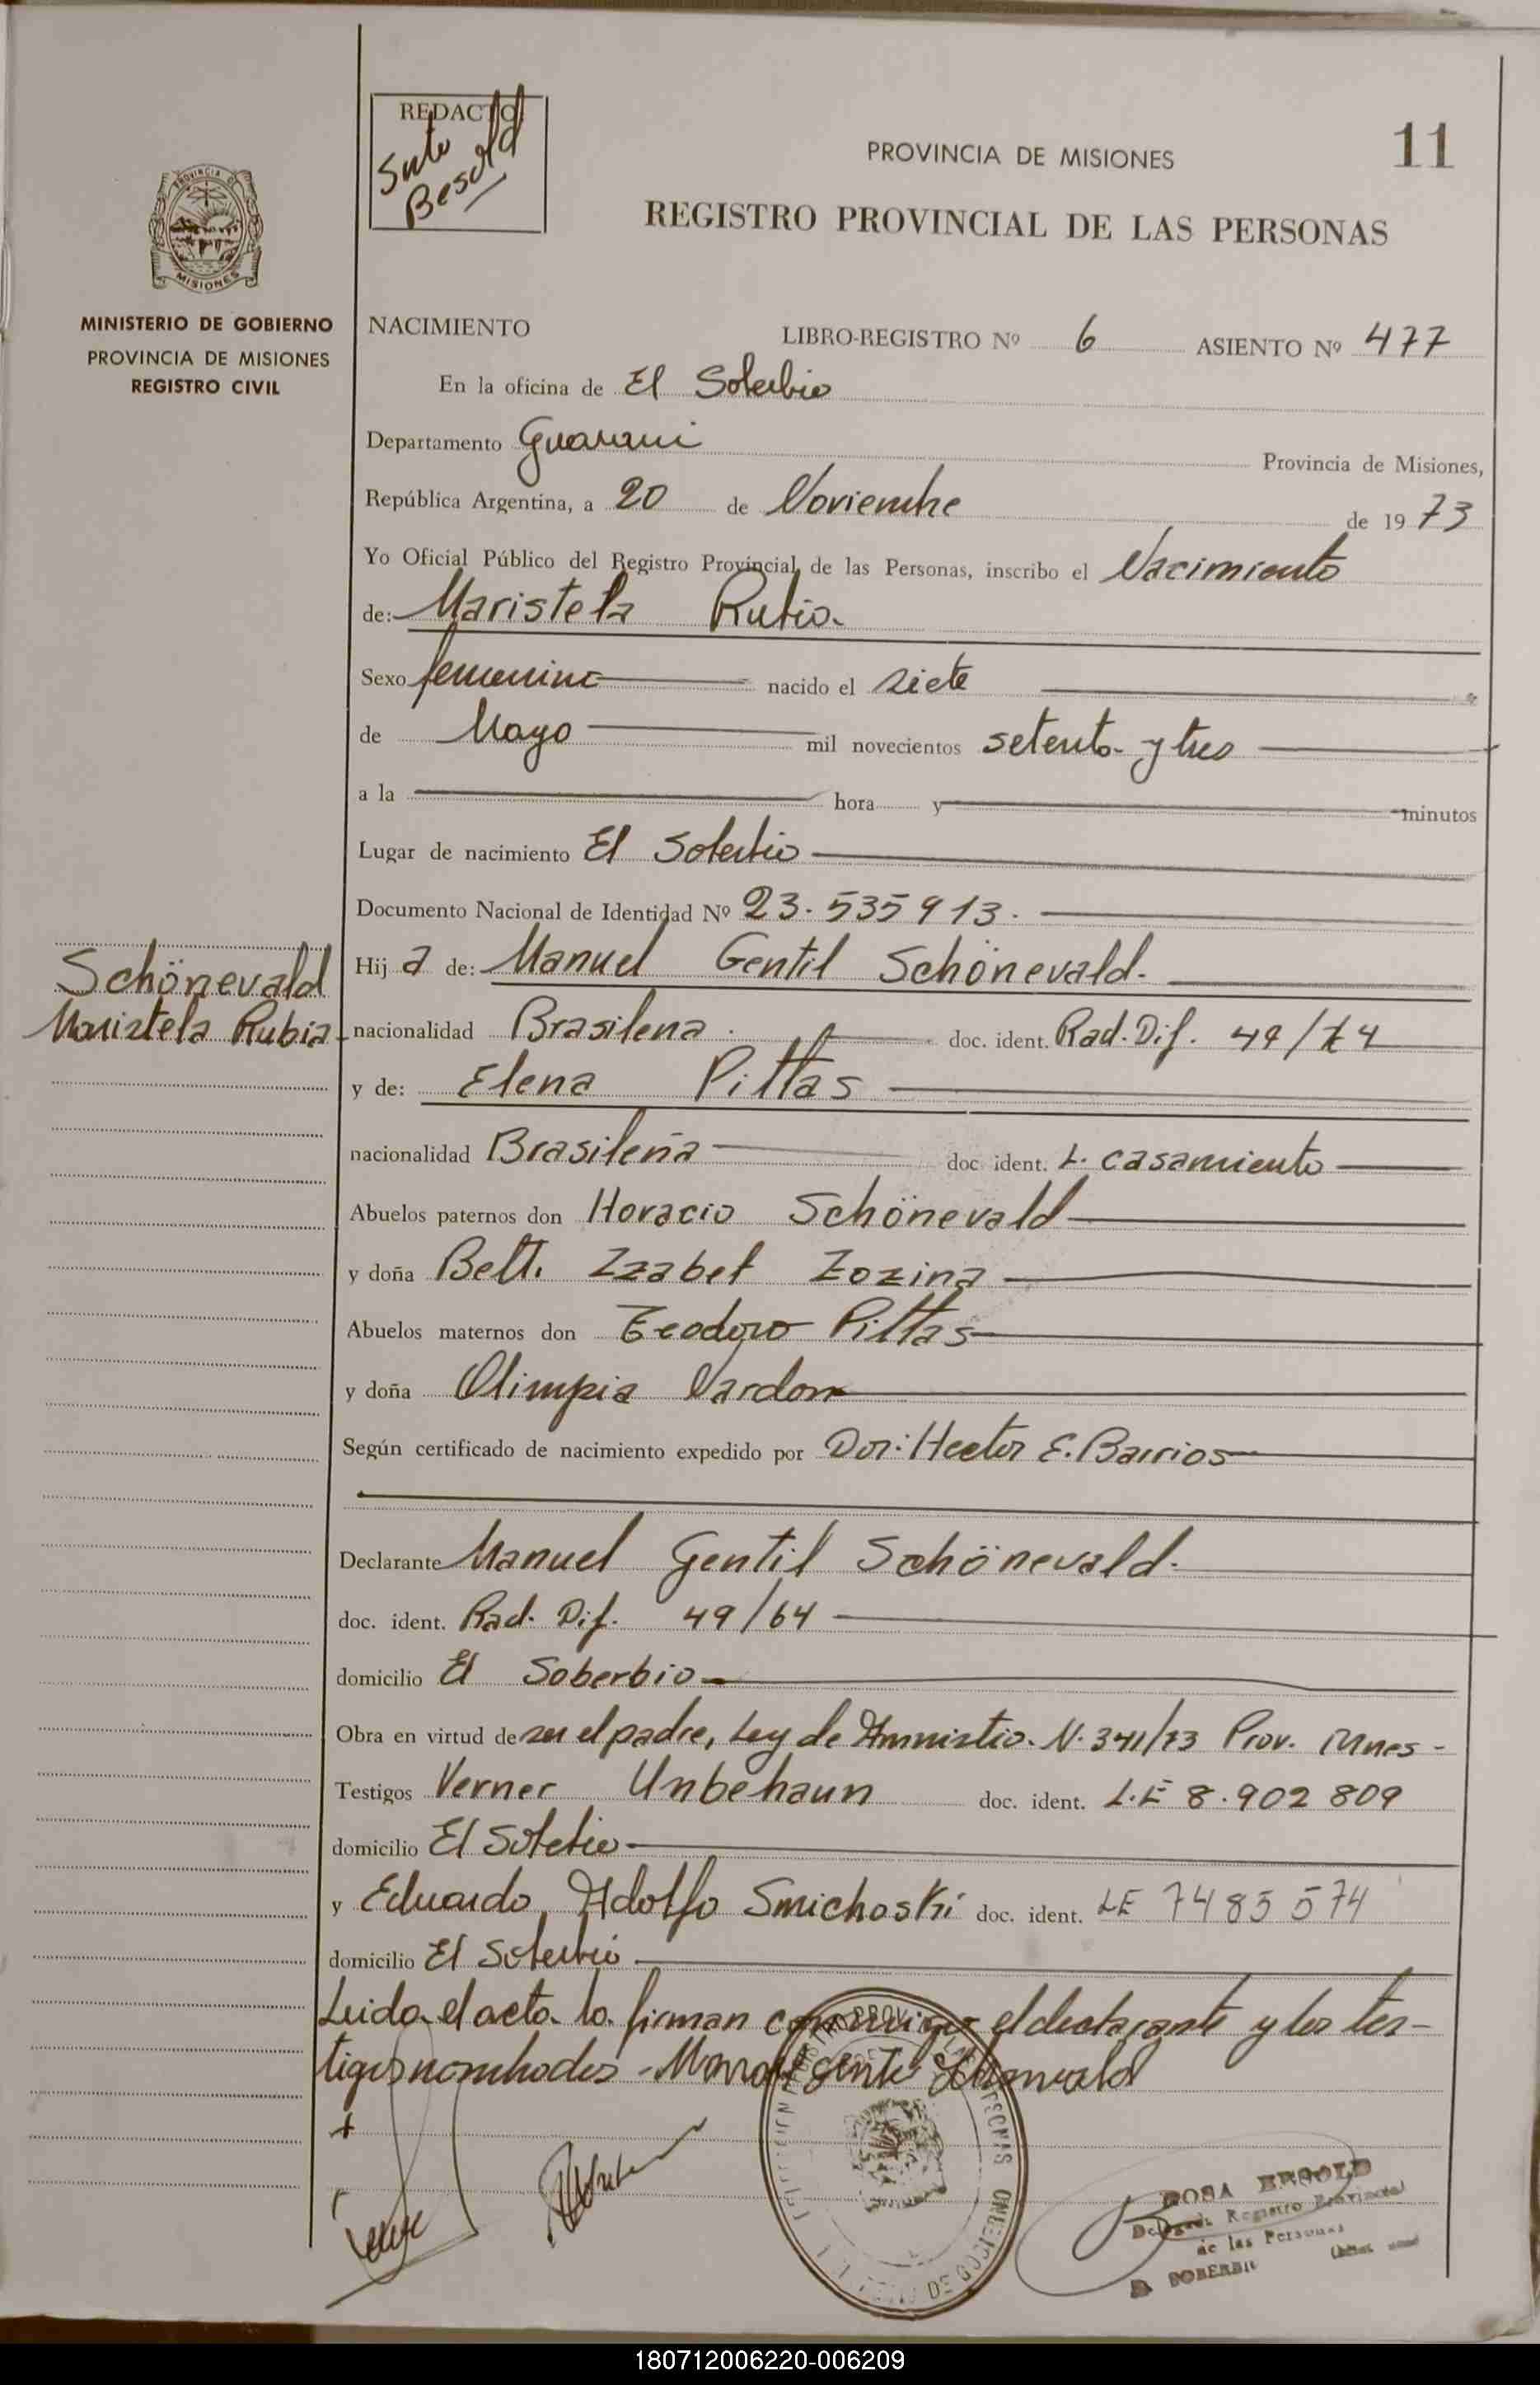 REDACTO
Suto
Besold
PROVINCIA DE MISIONES
11
REGISTRO PROVINCIAL DE LAS PERSONAS
PROVINCIA DE
MISIONES
MINISTERIO DE GOBIERNO
PROVINCIA DE MISIONES
REGISTRO CIVIL
NACIMIENTO LIBRO-REGISTRO Nº 6 ASIENTO Nº 477
En la oficina de El Soberbio
Departamento Guarani Provincia de Misiones,
República Argentina, a 20 de Noviembre de 1973
Yo Oficial Público del Registro Provincial de las Personas, inscribo el Nacimiento
de: Maristela Rubia
Sexo femenino nacido el siete
de Mayo mil novecientos setenta y tres
a la hora y minutos
Lugar de nacimiento El Soberbio
Documento Nacional de Identidad Nº 23.535913.
Schönevald
Maristela Rubia
Hija de: Manuel Gentil Schönevald
nacionalidad Brasilena doc. ident. Rad. Dif. 49/
y de: Elena Pittas
nacionalidad Brasileña doc. ident. L. casamiento
Abuelos paternos don Horacio Schönevald
y doña Belt. Izabel Zozina
Abuelos maternos don Teodoro Pittas
y doña Olimpia Vardon
Según certificado de nacimiento expedido por Dor: Hector E. Barrios
Declarante Manuel Gentil Schönevald
doc. ident. Rad. Dif. 49/64
domicilio El Soberbio
Obra en virtud de ser el padre, Ley de Amnistia N. 341/73 Prov. Mnes -
Testigos Verner Unbehaun doc. ident. L.E 8.902 809
domicilio El Soberbio
y Eduardo Adolfo Smichoski doc. ident. LE 7485 574
domicilio El Soberbio
Leida el acta la firman conmigo el declarante y los tes-
tigos nombrados -
ROSA BESOLD
Delegada Registro Provincial
de las Personas
EL SOBERBIO
180712006220-006209